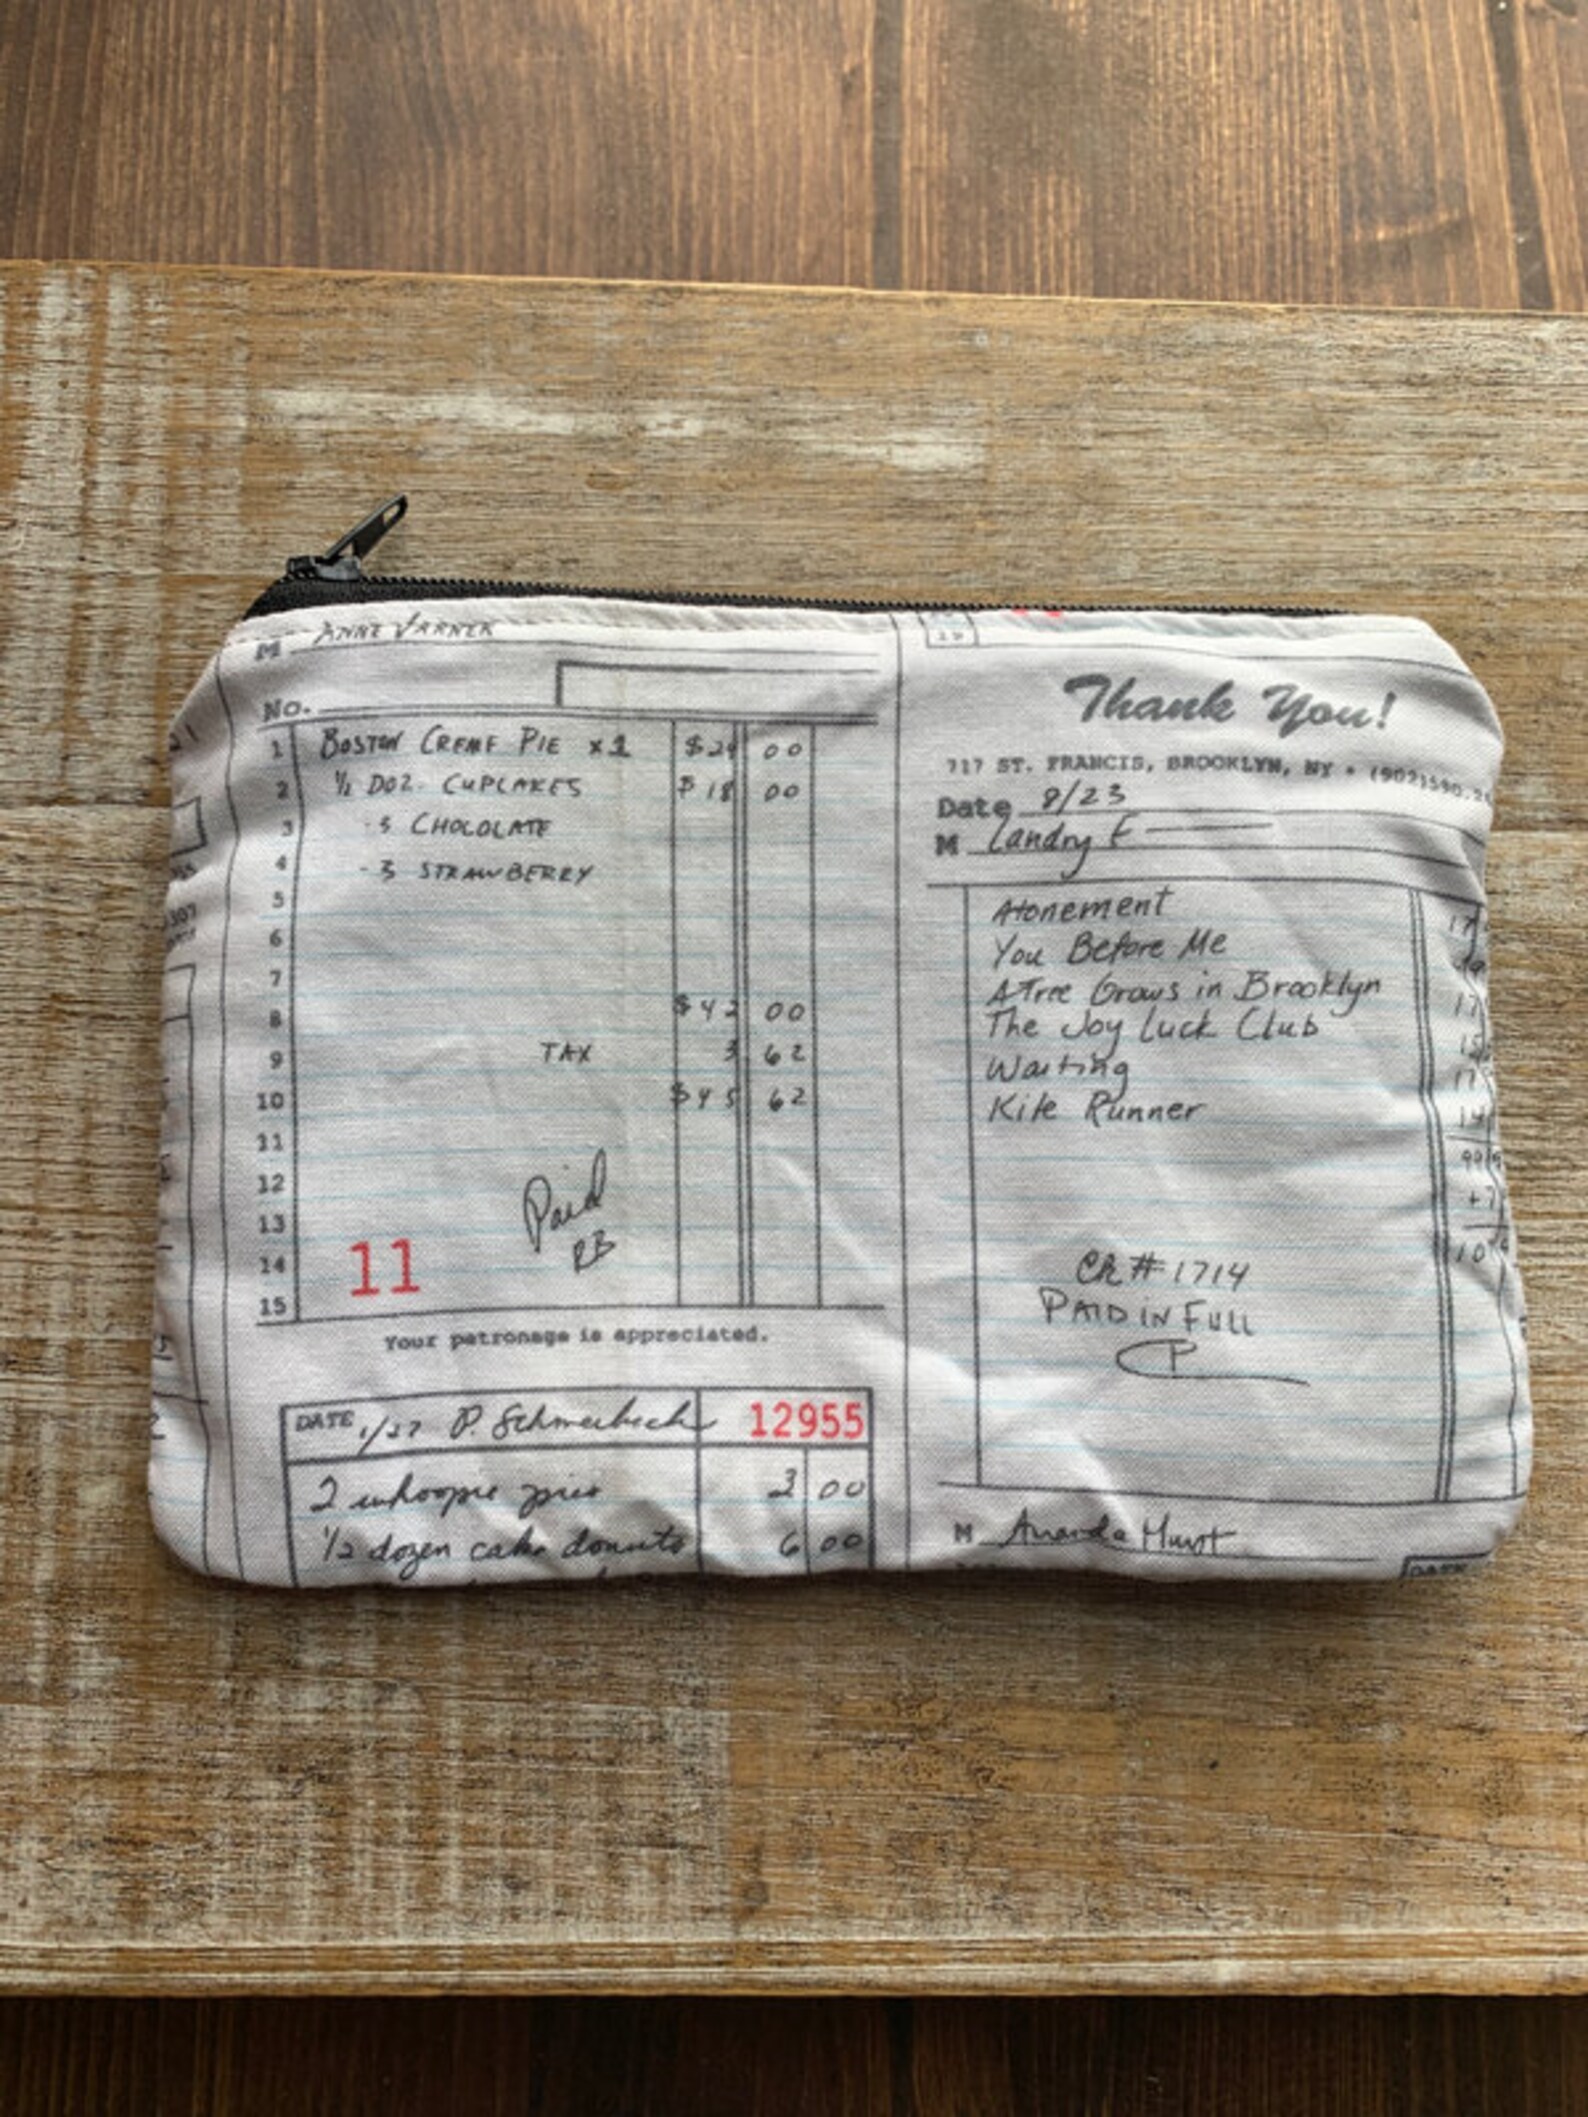 M ANNE VARNEK
No.
1 BOSTON CREME PIE x1 $24 00
2 ½ DOZ. CUPCAKES $18 00
3 -3 CHOCOLATE
4 -3 STRAWBERRY
5
6
7
8 $42 00
9 TAX 3 62
10 $45 62
11
12
13
14
15
Paid
RB
11
Your patronage is appreciated.
DATE 1/27 P. 12955
2 whoopie pies 3 00
1/2 dozen cake donuts 6 00
Thank You!
717 ST. FRANCIS, BROOKLYN, NY • (902)590-2
Date 8/23
M Landry F
Atonement 17
You Before Me
A Tree Grows in Brooklyn 17
The Joy Luck Club 15
Waiting 17
Kite Runner 14
99
+7
10
CK #1714
PAID IN FULL
CP
M Amanda Hunt
DATE